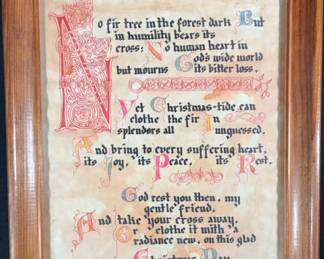 No fir tree in the forest dark But
in humility bears its
cross; No human heart in
God's wide world
but mourns its bitter loss.
Yet Christmas-tide can
clothe the fir In
splendors all unguessed.
And bring to every suffering heart,
its Joy, its Peace, its Rest.
God rest you then, my
gentle friend,
And take your cross away,
Or clothe it with a
radiance new, on this glad
Christmas Day